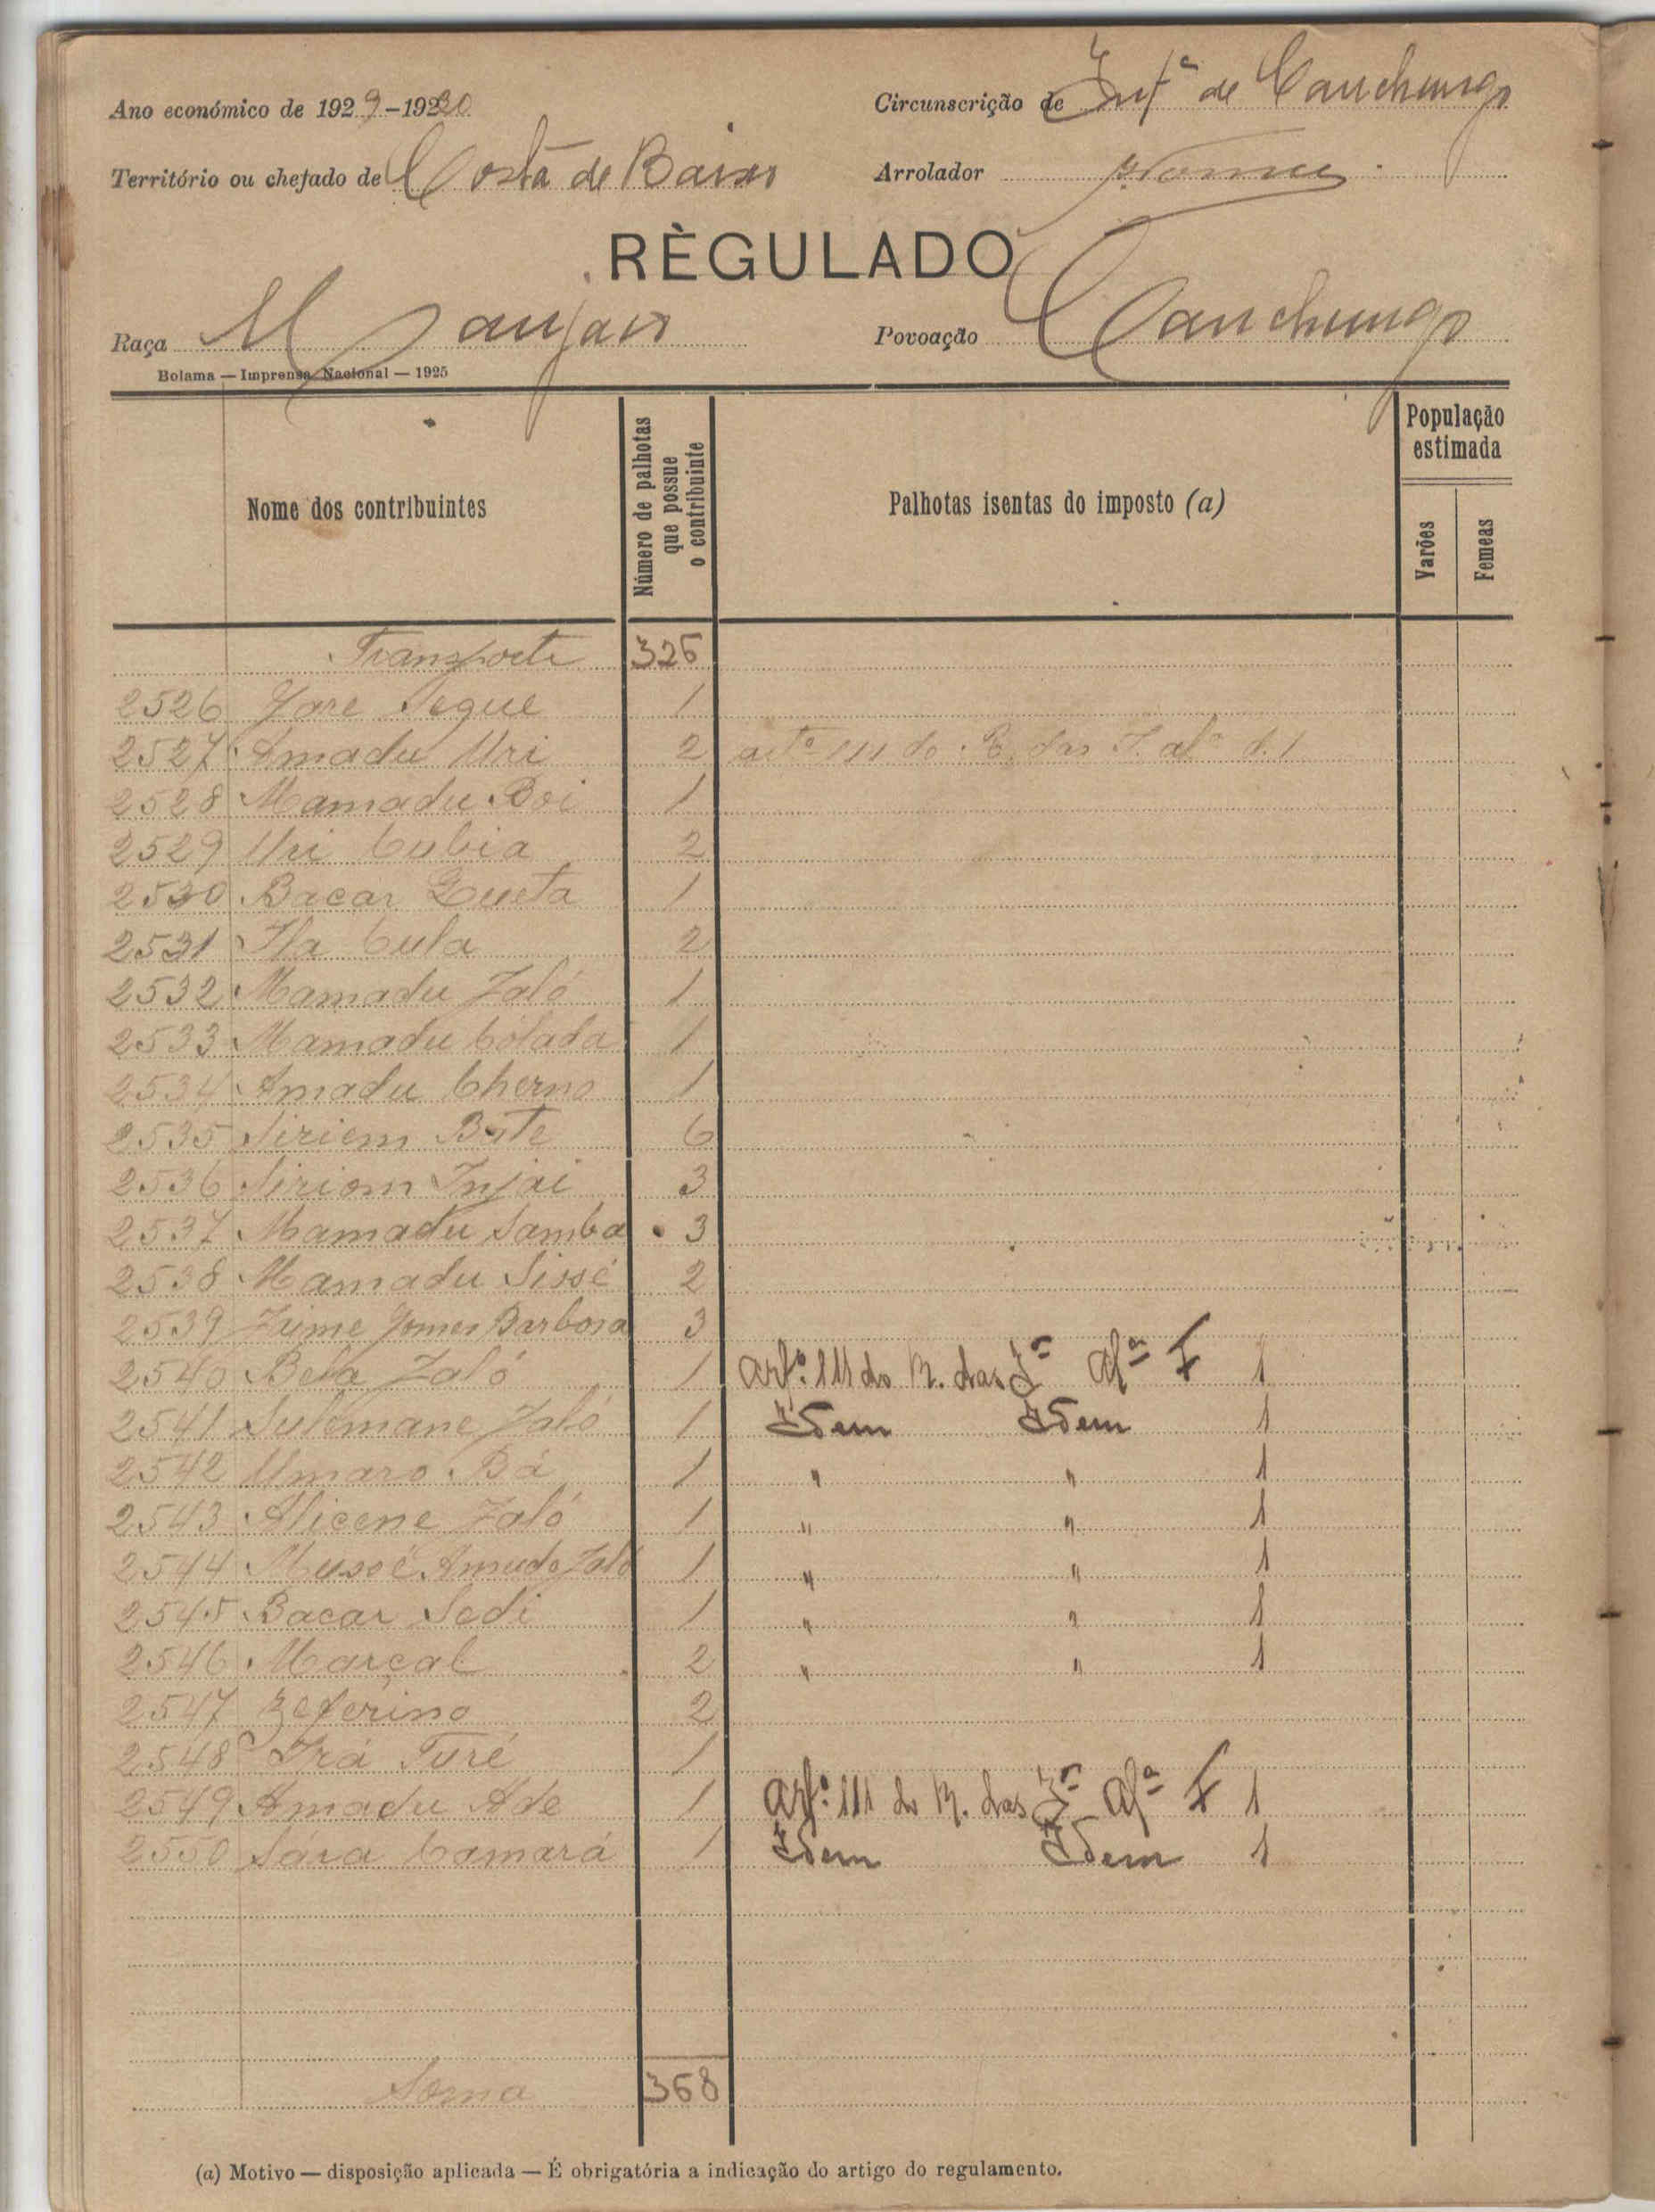 Ano económico de 1929-1930
Circunscrição de Int.ª de Canchungo
Território ou chefado de Costa de Baixo
Arrolador
RÈGULADO
Raça Manjaco
Povoação Canchungo
Bolama — Imprensa Nacional — 1925
Nome dos contribuintes
Número de palhotas que possue o contribuinte
Palhotas isentas do imposto (a)
População estimada
Varões
Femeas
Transporte 326
2526 Jare Segue 1
2527 Amadu Uri 2 artº 111 do R. das I. alª d. 1
2528 Mamadu Boi 1
2529 Uri Cubia 2
2530 Bacar Queta 1
2531 Ila Cula 2
2532 Mamadu Jaló 1
2533 Mamadu Colada 1
2534 Amadu Cherno 1
2535 Siriem Bate 6
2536 Siriom Injai 3
2537 Mamadu Samba 3
2538 Mamadu Sissé 2
2539 Jaime Gomes Barbosa 3
2540 Bela Jaló 1 Artº. 111 do R. das Iˢ Alª F 1
2541 Sulemane Jaló 1 Idem Idem 1
2542 Umaro Bá 1 " " 1
2543 Alicene Jaló 1 " " 1
2544 Mussé Amudo Jaló 1 " " 1
2545 Bacar Sedi 1 " " 1
2546 Marçal 2 " " 1
2547 Zeferino 2
2548 Irá Turé 1
2549 Amadu Ade 1 Artº. 111 do R. das Iˢ Alª F 1
2550 Sára Camará 1 Idem Idem 1
Soma 368
(a) Motivo — disposição aplicada — É obrigatória a indicação do artigo do regulamento.